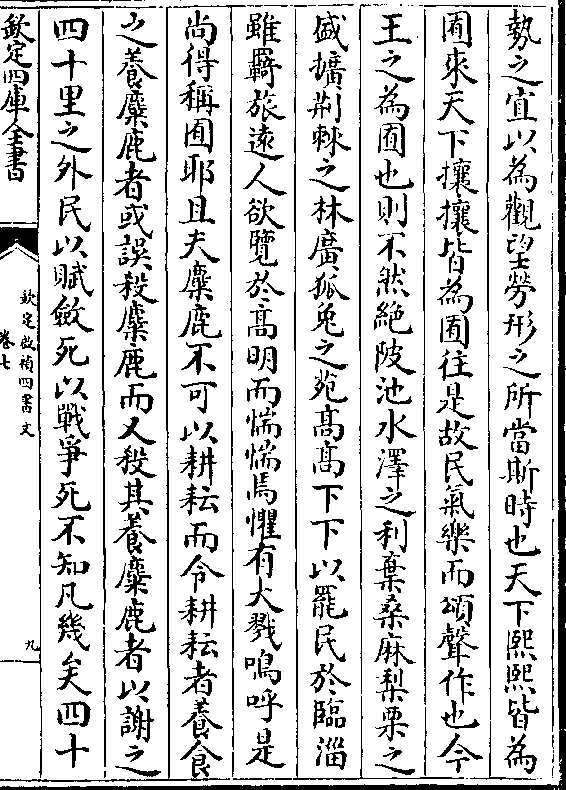 勢之宜以為觀望勞形之所當斯時也天下熙熙皆為
囿來天下攘攘皆為囿往是故民氣樂而頌聲作也今
王之為囿也則不然絶陂池水澤之利棄桑麻梨栗之
盛擴荆棘之林廣狐兔之苑髙髙下下以罷民於臨淄
雖羇旅遠人欲覽於髙明而惴惴焉懼有大戮嗚呼是
尚得稱囿耶且夫麋鹿不可以耕耘而令耕耘者養食
之養麋鹿者或誤殺麋鹿而又殺其養麋鹿者以謝之
四十里之外民以賦斂死以戰爭死不知凡幾矣四十
欽定四庫全書
欽定啟禎四書文
卷七
九